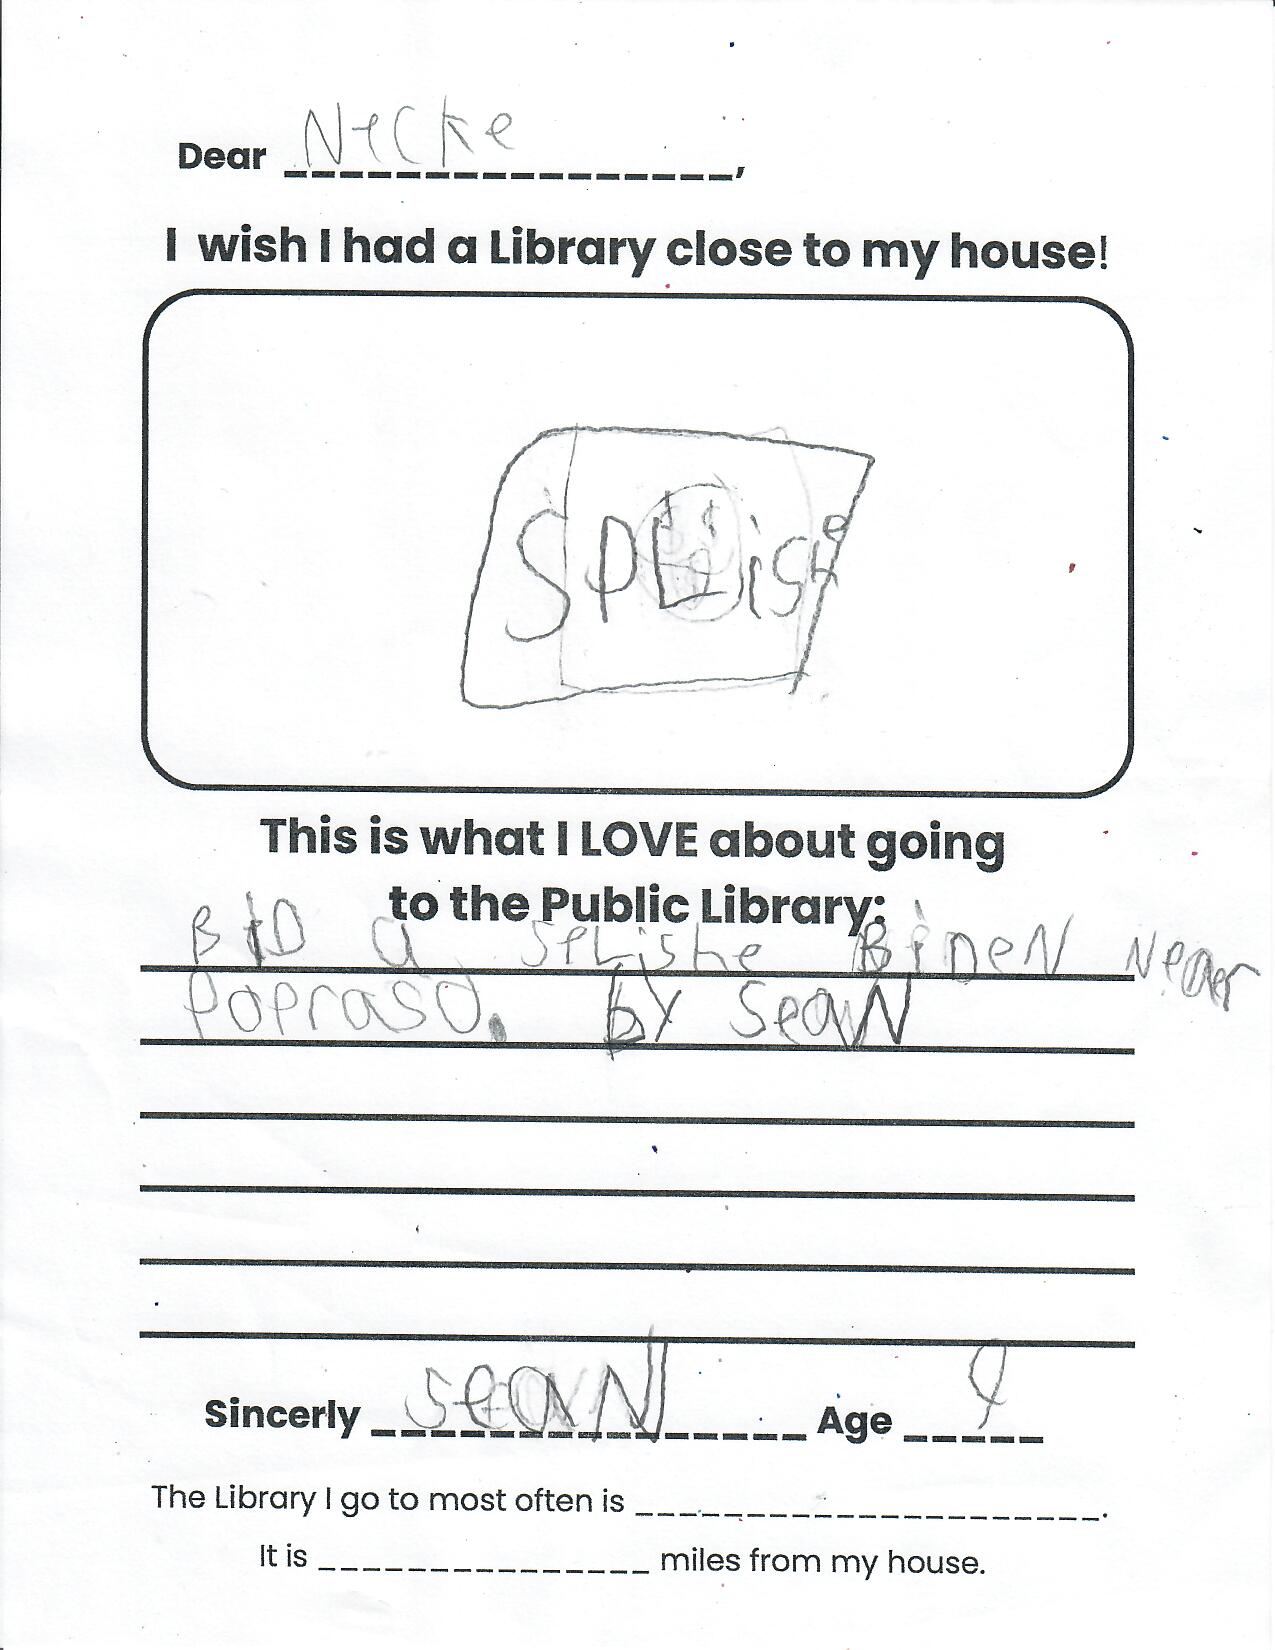 Dear Necke,
I wish I had a Library close to my house!
SPLishe
This is what I LOVE about going
to the Public Library:
BiD a SPLishe BiDeN Near
PoPraso. by SeaN
Sincerly SeaN Age 9
The Library I go to most often is ____________________.
It is ______________ miles from my house.